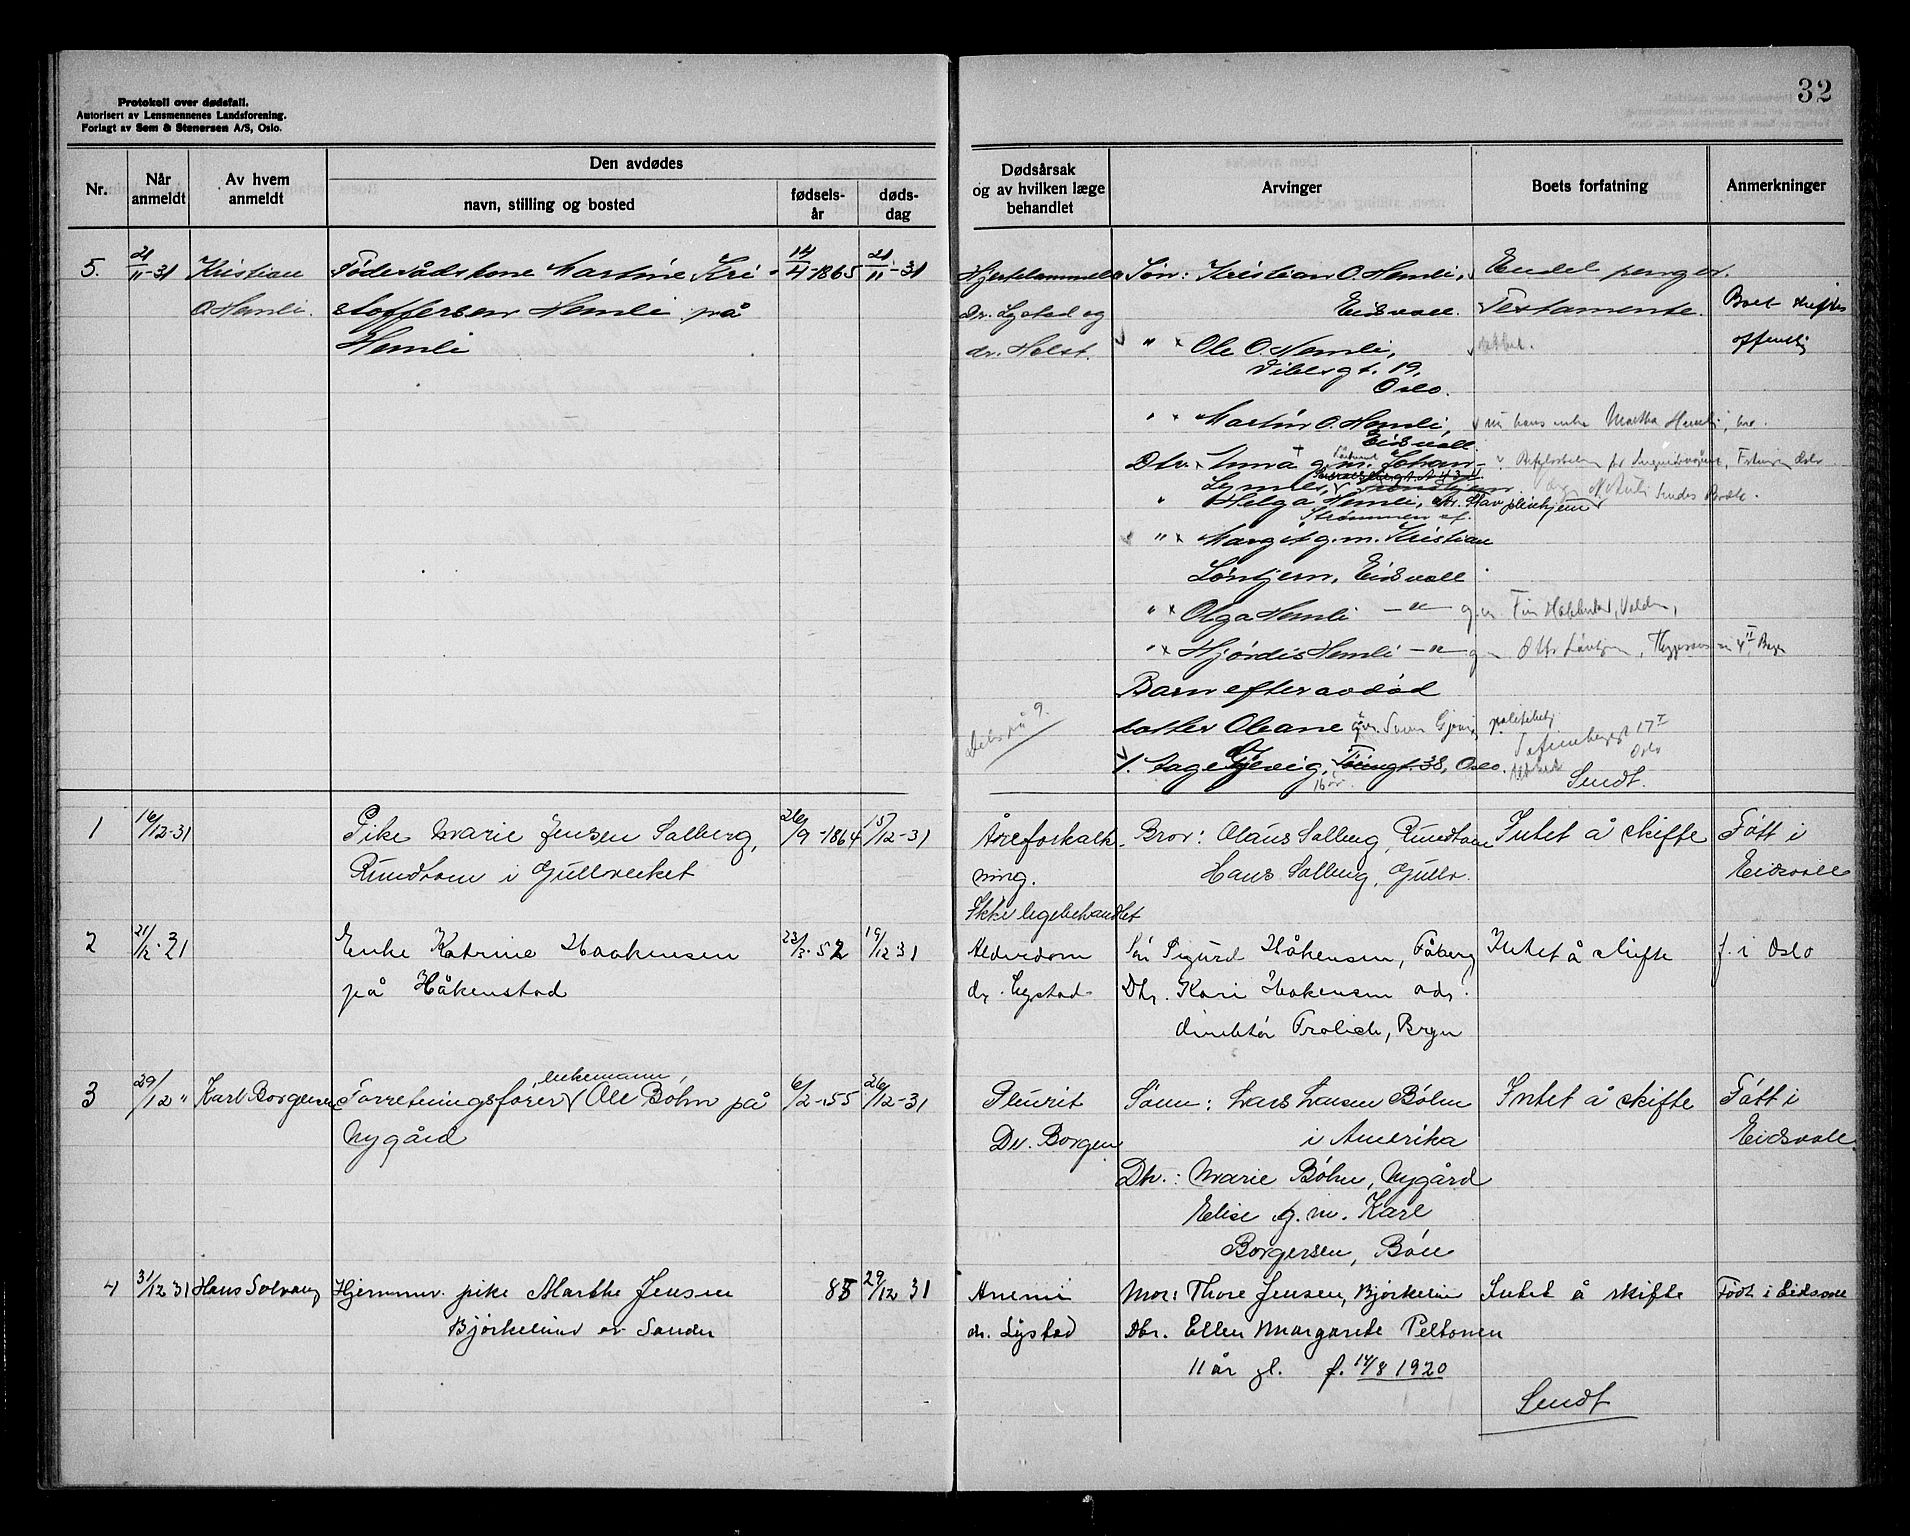 32
Protokoll over dødsfall.
Autorisert av Lensmennenes Landsforening.
Forlagt av Sem & Stenersen A/S, Oslo.
Nr.
Når anmeldt
Av hvem anmeldt
Den avdødes
navn, stilling og bosted
fødsels-år
døds-dag
Dødsårsak og av hvilken læge behandlet
Arvinger
Boets forfatning
Anmerkninger
5. 21/11-31 Kristian Føderådskone Martine Kri- 14/4-1865 21/11-31
O Hemli. stoffersen Hemli på
Hemli
Hjertelammelse
Dr. Lystad og
dr. Holst.
Søn: Kristian O. Hemli,
Eidsvoll.
" Ole O. Hemli,
Vibesgt. 19,
Oslo.
" Martin O. Hemli,
Eidsvoll
Dtr. Anna g.m. Johan
" Helga Hemli,
Strømmen st.
" Margit g.m. Kristian
Løvhjem, Eidsvoll
" Olga Hemli — " — g.m.
" Hjørdis Hemli — " — g.m.
Barn efter avdød
datter Oleane
1. Aage Gjevig, 38, Oslo.
16 år.
Endel penger.
Testamente.
nu hans enke Martha Hemli,
Oslo
Sendt.
Boet skiftes
offentlig
1 16/12-31 Pike Marie Jensen Solberg, 26/9-1864 15/12-31
Rundtom i Gullverket
Åreforkalk-
ning.
Ikke legebehandlet
Bror: Olaus Solberg, Rundtom
Hans Solberg, Gullv.
Intet å skifte
Født i
Eidsvoll
2 21/12-31 Enke Katrine Haakensen 23/3-52 19/12 31
på Håkenstad
Alderdom
dr. Lystad
Søn Sigurd Håkensen, Fåberg
Dtr. Kari Hakensen adr.
direktør Frolich, Bryn
Intet å skifte
f. i Oslo
3 29/12 " Karl Borgersen Forretningsfører Ole Bøhn på 6/2-55 26/12-31
enkemann,
Nygård
Pleurit
Dr. Borgen
Sønn: Lars Larsen Bøhn
i Amerika
Dtr.: Marie Bøhn, Nygård
Elise g.m. Karl
Borgersen, Bøn
Intet å skifte
Født i
Eidsvoll
4 31/12 31 Hans Solvang Hjemmev. pike Marthe Jensen 85 29/12 31
Bjørkelund av Sander
Anemi
dr. Lystad
Mor: Thore Jensen, Bjørkelund
Dtr. Ellen Margarete Peltonen
11 år gl. f. 14/8 1920
Intet å skifte
Født i Eidsvoll
Sendt